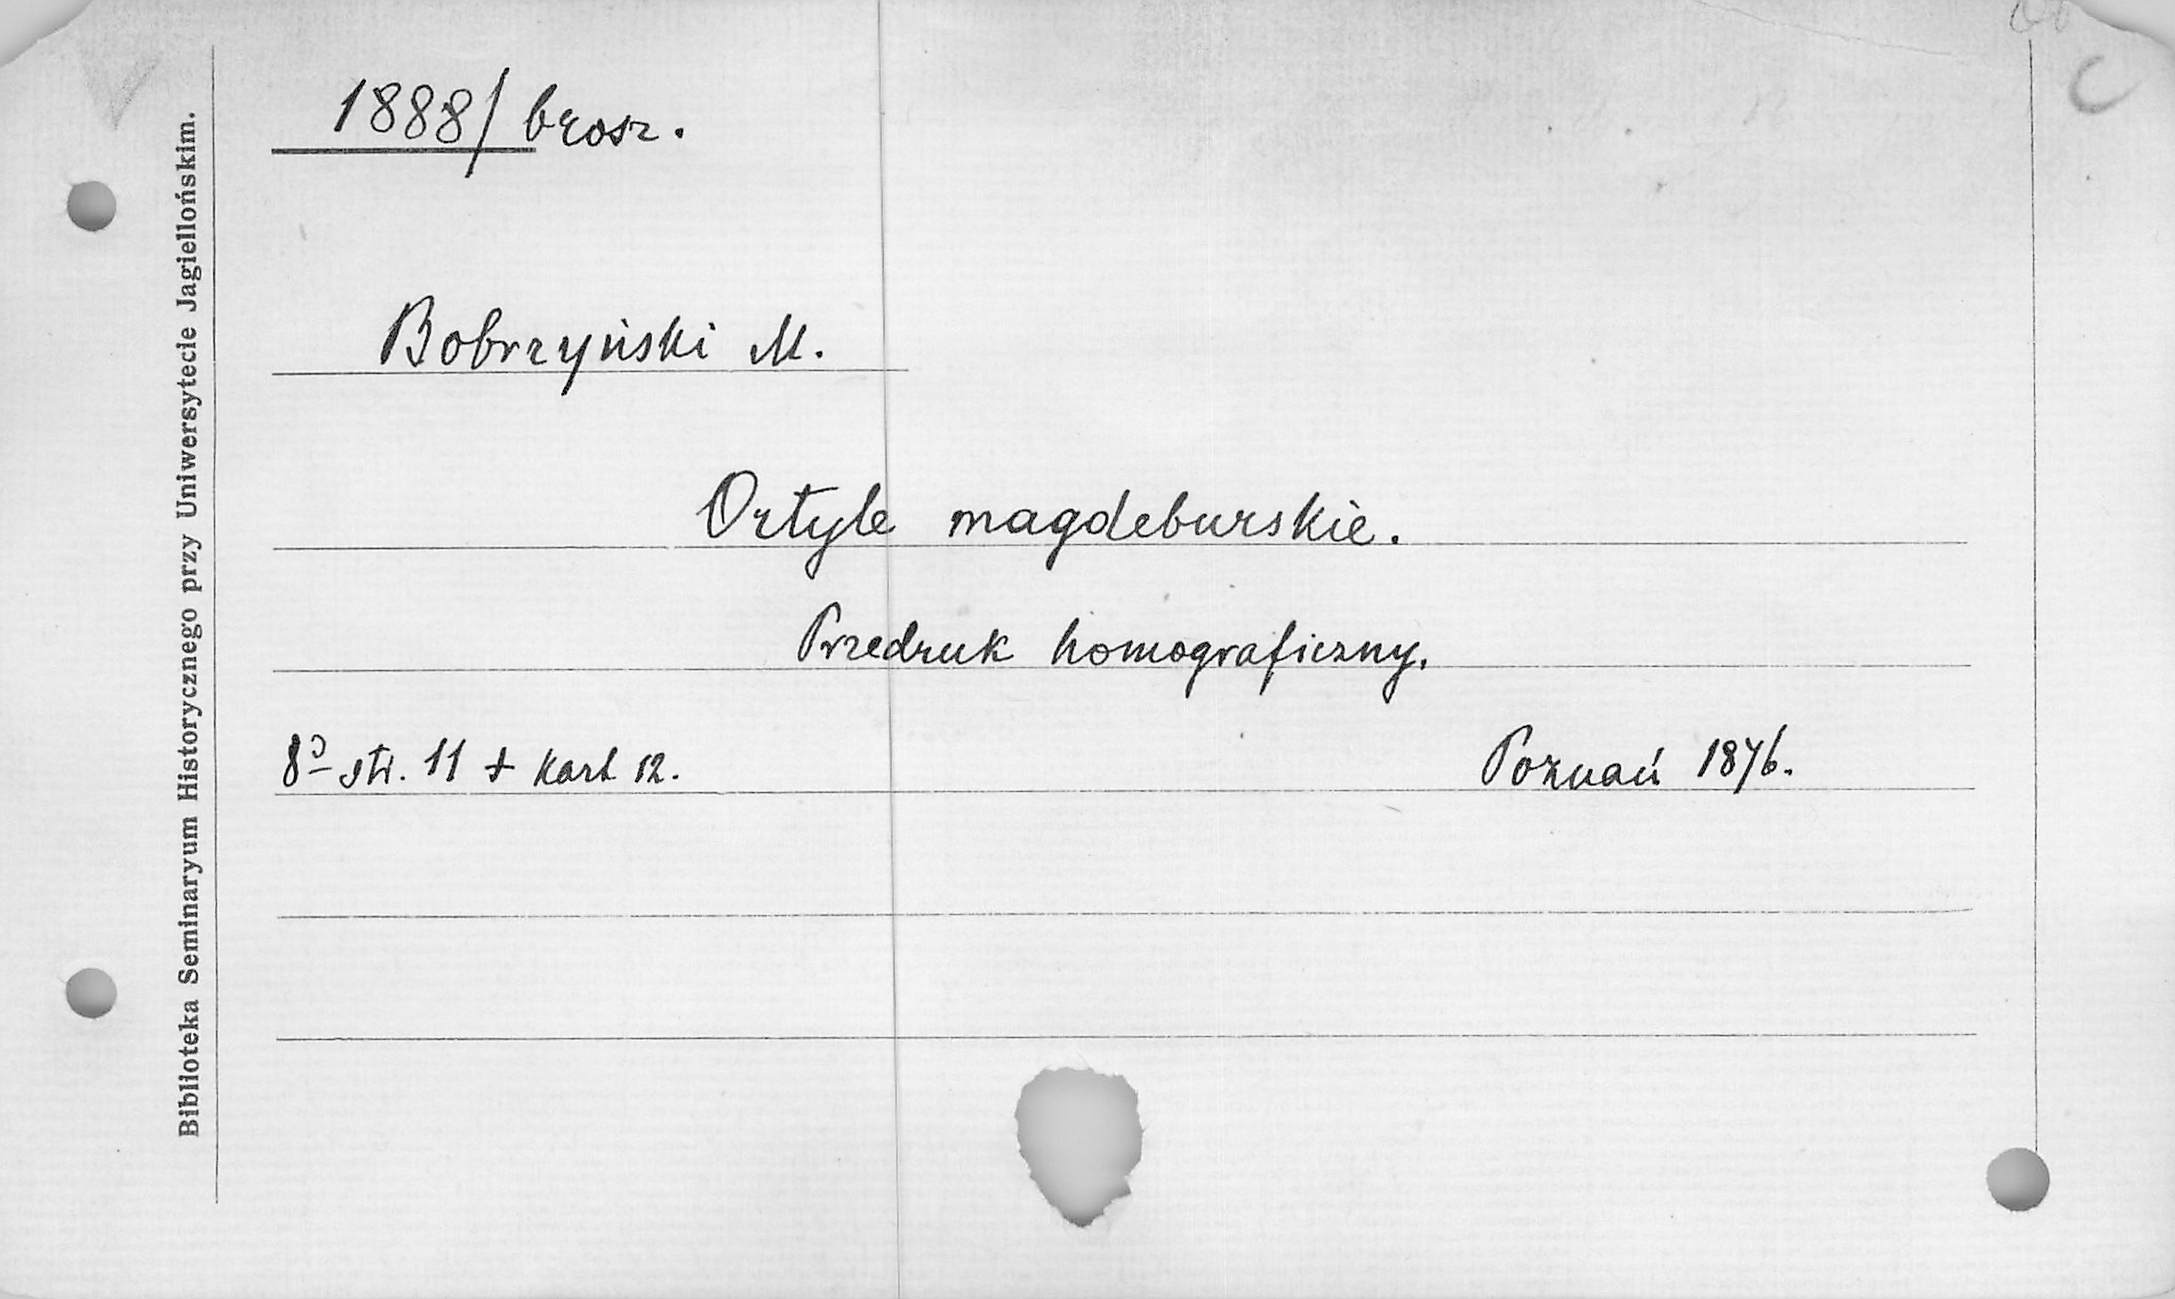 1888/ brosz.
Bobrzyński M.
Ortyle magdeburskie.
Przedruk homograficzny.
8º str. 11 + kart 12.
Poznań 1876.
Biblioteka Seminaryum Historycznego przy Uniwersytecie Jagiellońskim.